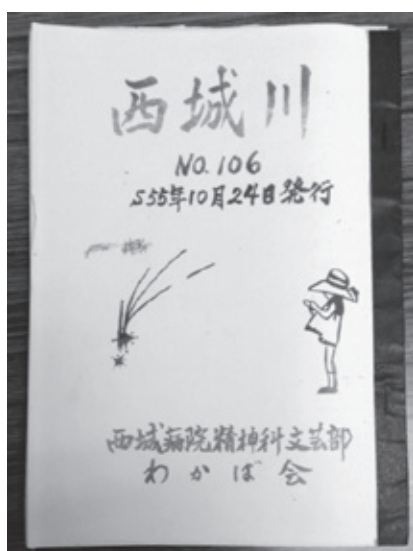 西城川
NO. 106
S55年10月24日発行
西城病院精神科文芸部
わかば会